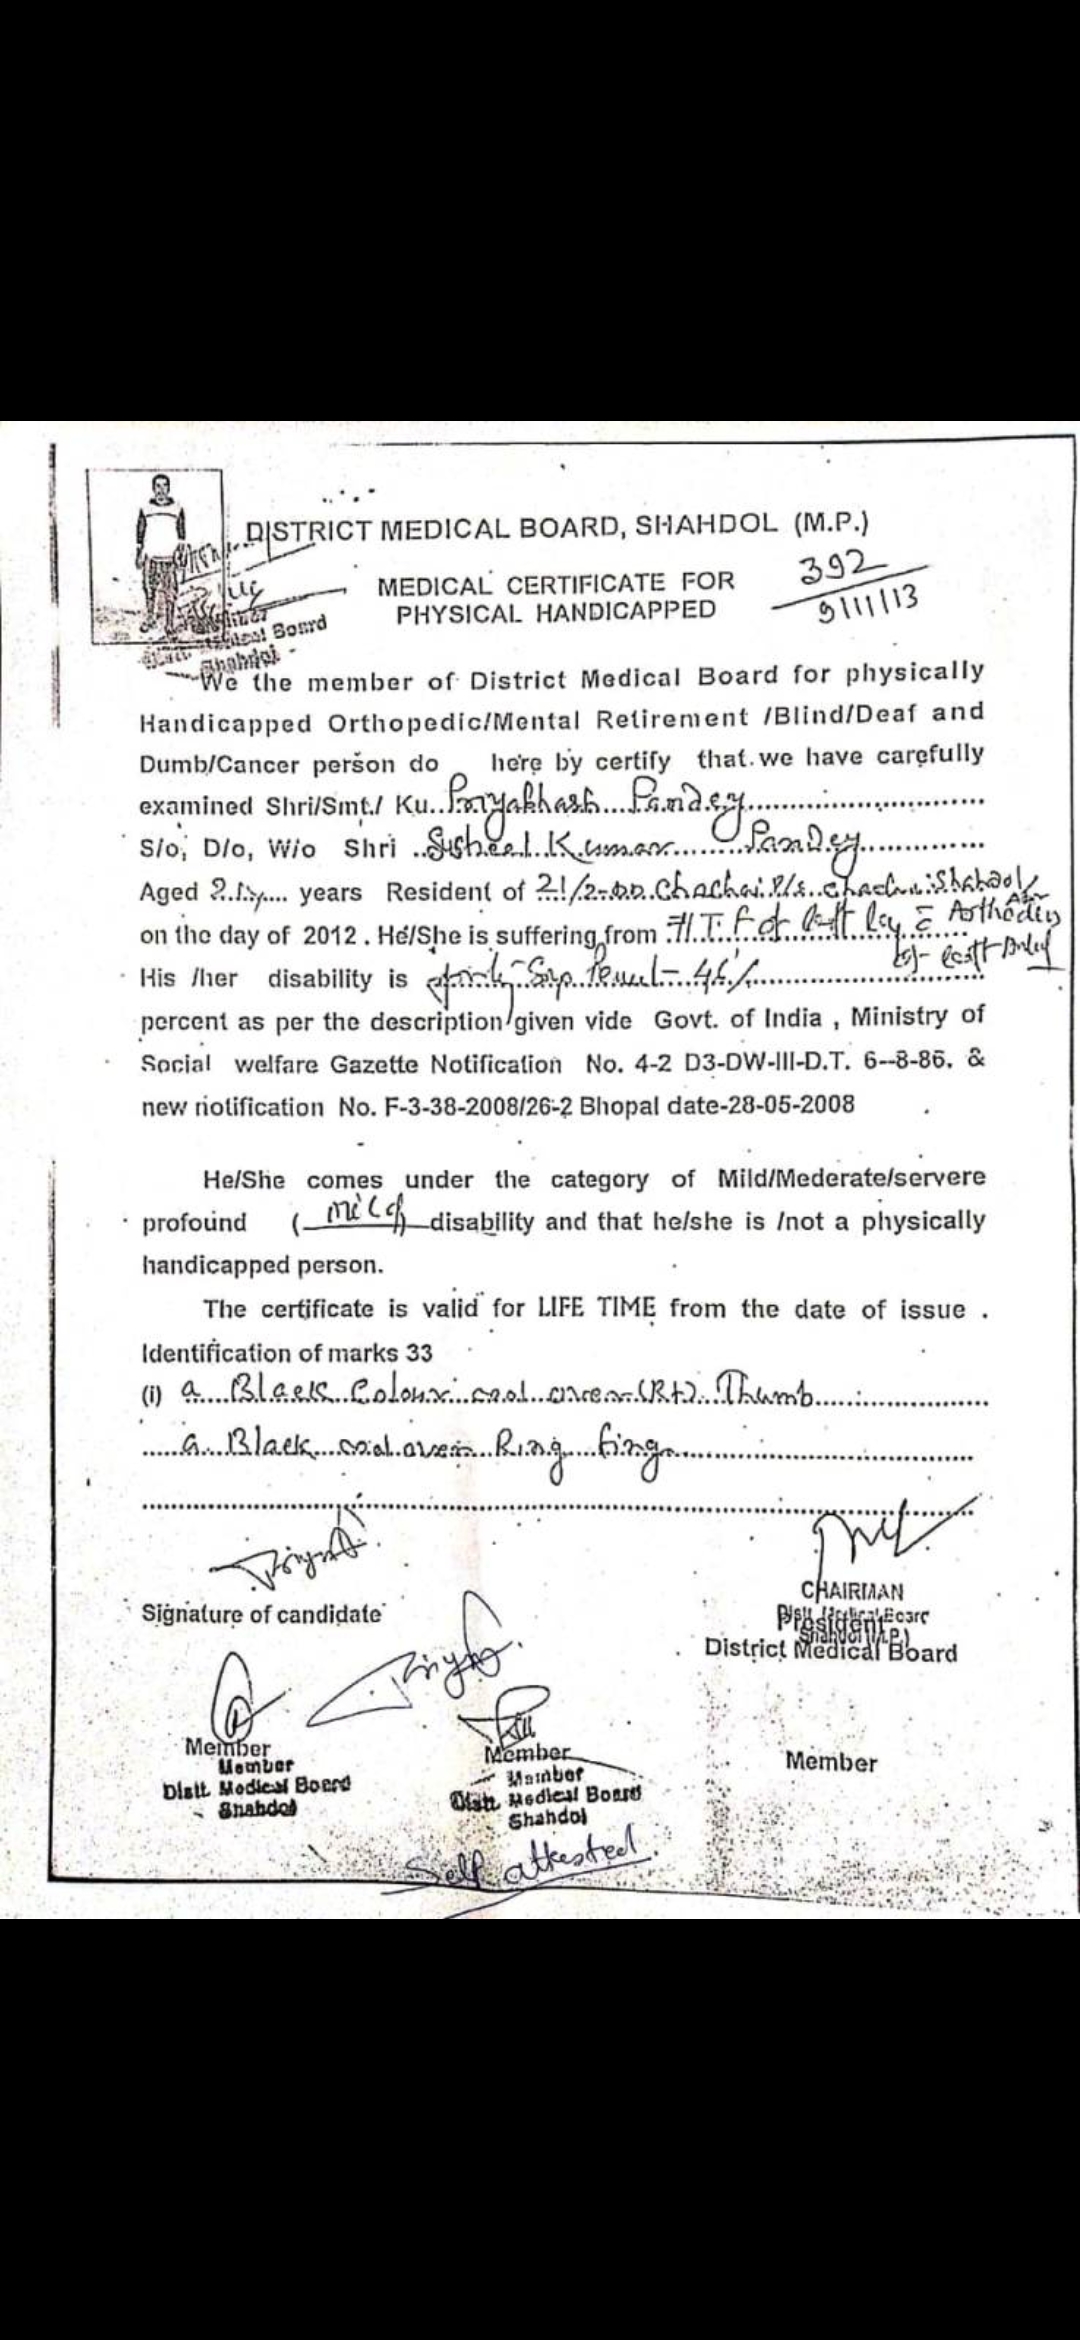 DISTRICT MEDICAL BOARD, SHAHDOL (M.P.)
392
9/11/13
MEDICAL CERTIFICATE FOR
PHYSICAL HANDICAPPED
Medical Board
Shahdol
We the member of District Medical Board for physically
Handicapped Orthopedic/Mental Retirement /Blind/Deaf and
Dumb/Cancer person do here by certify that we have carefully
examined Shri/Smt./ Ku. Priyabhash Pandey
S/o, D/o, W/o Shri Susheel Kumar Pandey
Aged 21y years Resident of Chachai P/s. Shahdol
on the day of 2012 . He/She is suffering from of left leg
left
His /her disability is
percent as per the description given vide Govt. of India , Ministry of
Social welfare Gazette Notification No. 4-2 D3-DW-III-D.T. 6--8-86. &
new notification No. F-3-38-2008/26-2 Bhopal date-28-05-2008
He/She comes under the category of Mild/Mederate/servere
profound (mild) disability and that he/she is /not a physically
handicapped person.
The certificate is valid for LIFE TIME from the date of issue .
Identification of marks 33
(i) a Black Colour (Rt) Thumb
a Black Ring
Signature of candidate
CHAIRMAN
President
District Medical Board
Member
Member
Distt. Medical Board
Shahdol
Member
Member
Distt. Medical Board
Shahdol
Member
Self attested